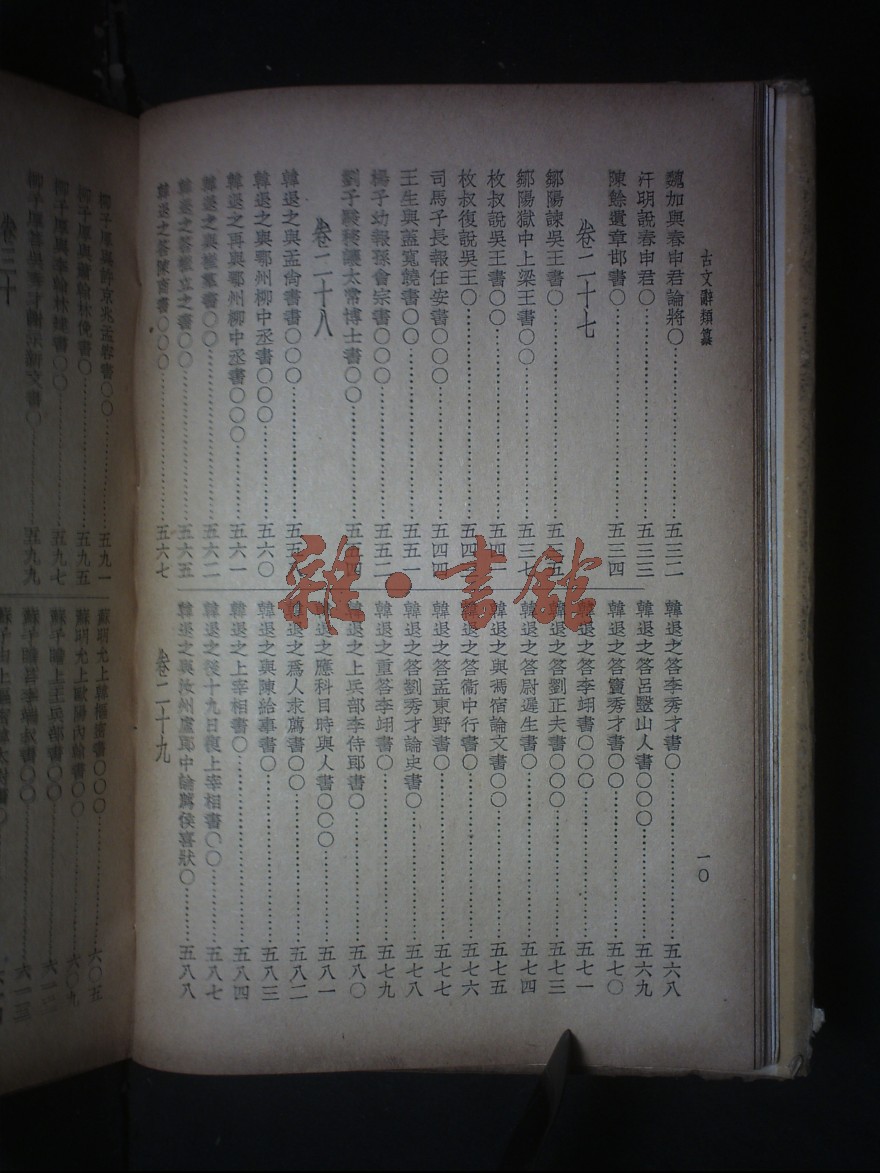 古文辭類纂
一〇
魏加與春申君論將〇…………五三二
汗明說春申君〇…………五三三
陳餘遺章邯書〇…………五三四
卷二十七
鄒陽諫吳王書〇〇…………五三五
鄒陽獄中上梁王書〇〇…………五三七
枚叔說吳王書〇〇…………五四
枚叔復說吳王〇…………五四
司馬子長報任安書〇〇〇…………五四四
王生與蓋寬饒書〇〇…………五五一
楊子幼報孫會宗書〇〇〇…………五五二
劉子駿移讓太常博士書〇〇…………五五四
卷二十八
韓退之與孟尚書書〇〇〇…………五五
韓退之與鄂州柳中丞書〇〇〇…………五六〇
韓退之再與鄂州柳中丞書〇〇〇…………五六一
韓退之與崔羣書〇〇…………五六二
韓退之答崔立之書〇〇…………五六五
韓退之答陳商書〇〇〇…………五六七
韓退之答李秀才書〇…………五六八
韓退之答呂毉山人書〇〇〇…………五六九
韓退之答竇秀才書〇〇…………五七〇
韓退之答李翊書〇〇〇…………五七一
韓退之答劉正夫書〇〇〇…………五七三
韓退之答尉遲生書〇〇…………五七四
韓退之與馮宿論文書〇〇…………五七五
韓退之答衞中行書〇〇…………五七六
韓退之答孟東野書〇〇…………五七八
韓退之答劉秀才論史書〇…………五七八
韓退之重答李翊書〇〇…………五七九
韓退之上兵部李侍郎書〇〇…………五八〇
韓退之應科目時與人書〇〇〇…………五八一
韓退之爲人求薦書〇〇…………五八二
韓退之與陳給事書〇〇…………五八三
韓退之上宰相書〇…………五八四
韓退之後十九日復上宰相書〇〇…………五八七
韓退之與汝州盧郎中論薦侯喜狀〇…………五八八
卷二十九
柳子厚與許京兆孟容書〇〇…………五九一
柳子厚與蕭翰林俛書〇…………五九五
柳子厚與李翰林建書〇〇…………五九七
五九九
卷三十
蘇明允上韓樞密書〇〇〇…………六〇五
蘇明允上歐陽內翰書〇〇…………六〇九
蘇子瞻上王兵部書〇〇…………六一二
蘇子瞻答李端叔書〇〇…………六一三
雜·書館